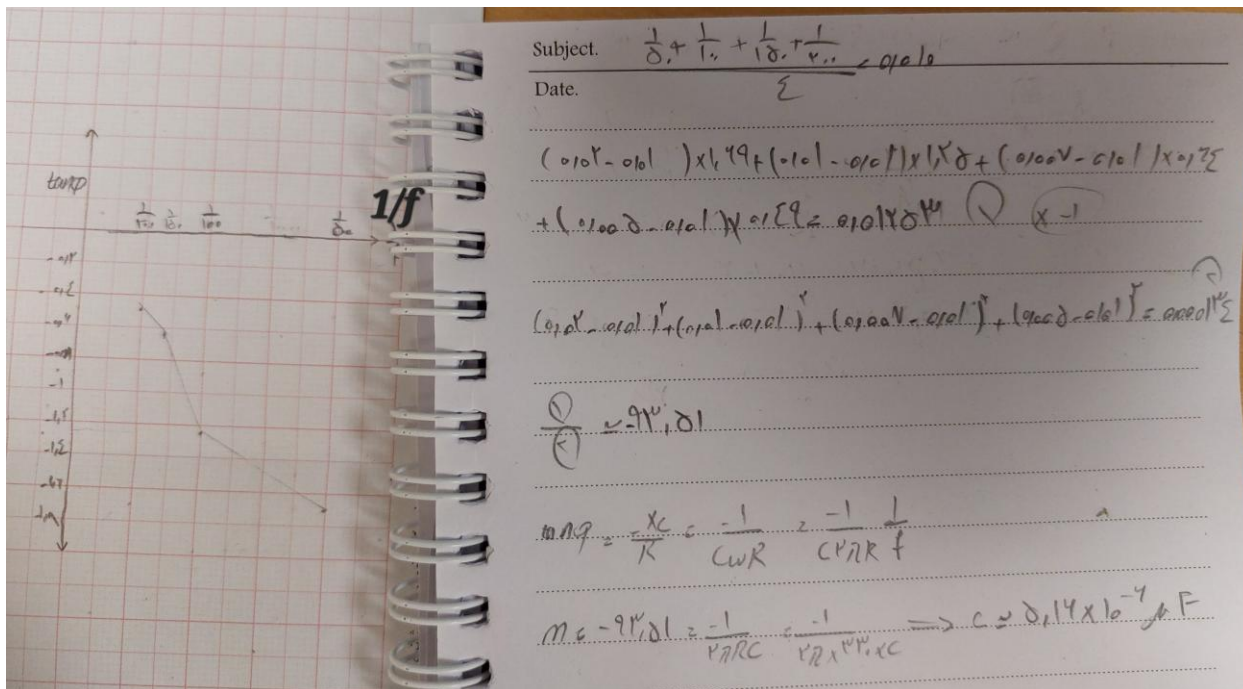 tanφ
1/f
۱/۲۰۰ ۱/۱۵۰ ۱/۱۰۰ ۱/۵۰
-۰,۲
-۰,٤
-۰,۶
-۰,۸
-۱
-۱,۲
-۱,٤
-۱,۶
-۱,۸
Subject. (۱/۵۰ + ۱/۱۰۰ + ۱/۱۵۰ + ۱/۲۰۰)/٤ = ۰,۰۱۰
Date.
(۰,۰۲ - ۰,۰۱) × ۱,۶۹ + (۰,۰۱ - ۰,۰۱) × ۱,۲۵ + (۰,۰۰۷ - ۰,۰۱) × ۰,۶٤
+ (۰,۰۰۵ - ۰,۰۱) × ۰,٤۹ = ۰,۰۱۲۵۳ ① × -۱
(۰,۰۲ - ۰,۰۱)^۲ + (۰,۰۱ - ۰,۰۱)^۲ + (۰,۰۰۷ - ۰,۰۱)^۲ + (۰,۰۰۵ - ۰,۰۱)^۲ = ۰,۰۰۰۱۳٤ ②
①/② ≃ -۹۳,۵۱
tanφ = -Xc/R = -1/CωR = -1/C۲πR 1/f
m = -۹۳,۵۱ = -1/۲πRC = -1/۲π×۳۳۰×C => C ≃ ۵,۱۶ × ۱۰^-۶ μF